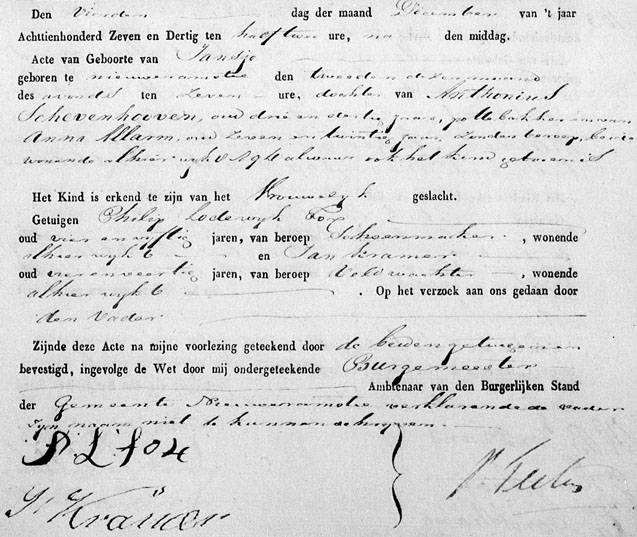 Den Vierden dag der maand December van 't jaar
Achttienhonderd Zeven en Dertig ten half twee ure, na den middag.
Acte van Geboorte van Jansje
geboren te nieuweramstel den tweeden dezer maand
des avonds ten Zeven ure, dochter van Anthonius
Schevenhooven, oud drie en dertig jaren, pottebakker en van
Anna Allarm, oud Zeven en twintig jaren, zonder beroep, beide
wonende alhier wyk alwaar ook het kind geboren is
Het Kind is erkend te zijn van het Vrouwelyk geslacht.
Getuigen Philip Lodewyk Fox
oud vier en vyftig jaren, van beroep Schoenmaker, wonende
alhier wyk 6 en Jan Kramer
oud vier en veertig jaren, van beroep Veldwachter, wonende
alhier wyk 6. Op het verzoek aan ons gedaan door
den Vader
Zijnde deze Acte na mijne voorlezing geteekend door de beiden getuigen en
bevestigd, ingevolge de Wet door mij ondergeteekende Burgemeester
Ambtenaar van den Burgerlijken Stand
der Gemeente Nieuweramstel verklarende de vader
zyn naam niet te kunnen schryven
P. L. fox
J. Kramer